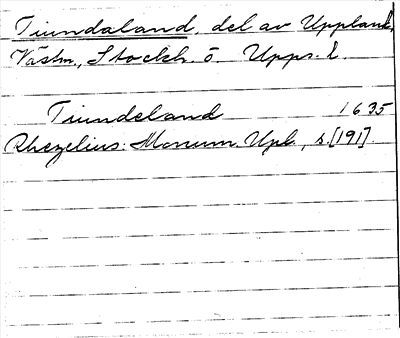 Tiundaland, del av Uppland,
Västm., Stockh. o. Upps. l.
Tiundeland 1635
Rhezelius: Monum. Upl., s. [191].